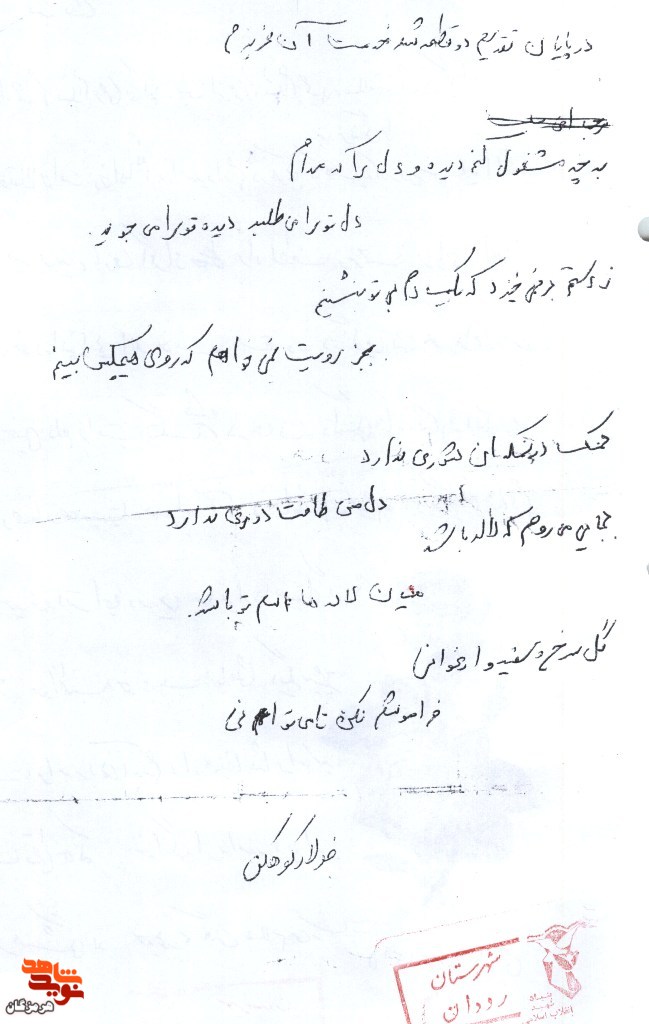 در پایان تقدیم دو قطعه شعر خدمت آن عزیزم
به چه مشغول کنم دیده و دل را که مدام
دل تو را می طلبد دیده تو را می جوید
ز دستم بر نمی خیزد که یک دم بی تو بنشینم
بجز رویت نمی خواهم که روی هیچکس بینم
نمک در نمکدان شوری ندارد
دل من طاقت دوری ندارد
جایی می روم که لاله باشد
میان لاله ها اسم تو باشد
گل سرخ و سفید و ارغوانی
فراموشم نکن تا می توانی
کوهکن
شهرستان
رودان
بنیاد
شهید
انقلاب اسلامی
نوید شاهد
هرمزگان